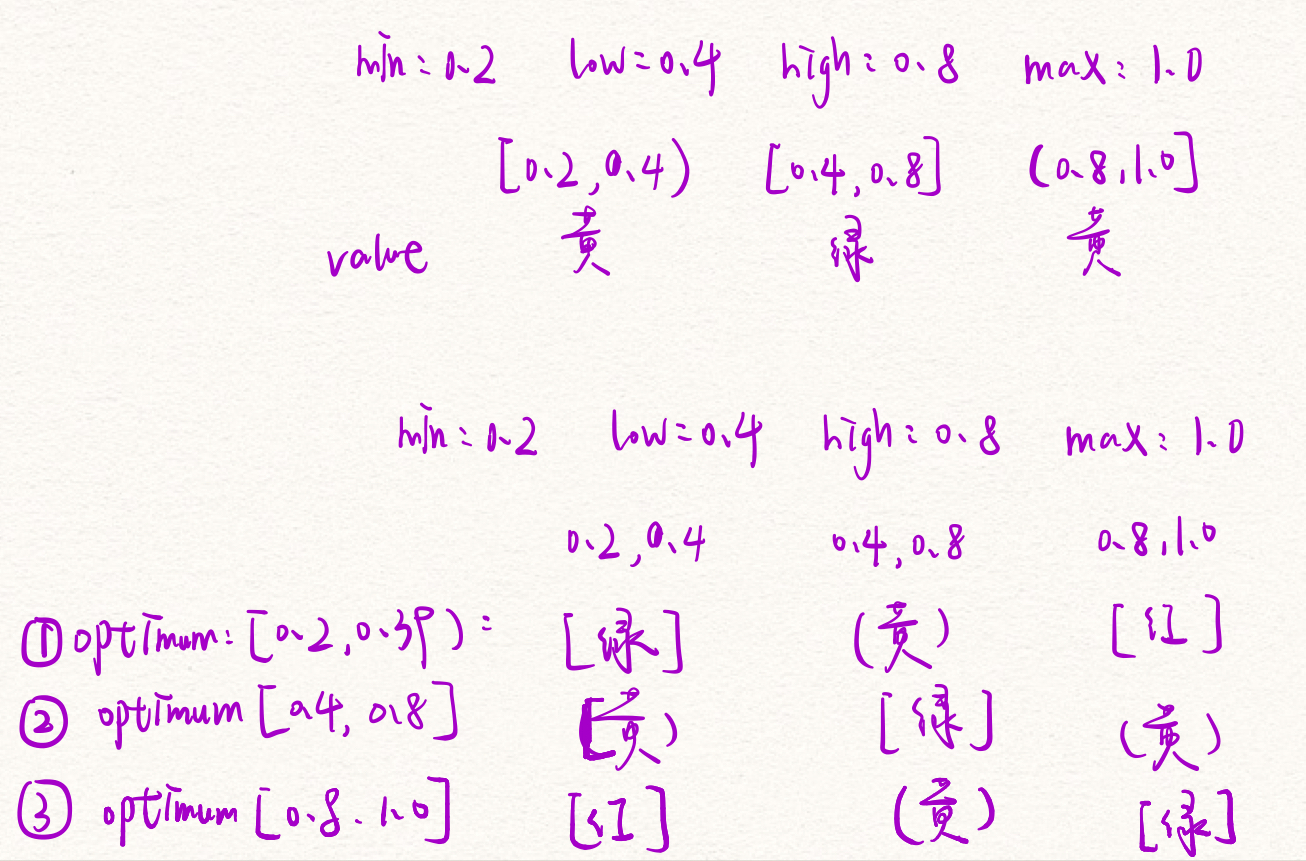 min: 0.2 low=0.4 high: 0.8 max: 1.0
[0.2, 0.4) [0.4, 0.8] (0.8, 1.0]
value 黄 绿 黄
min: 0.2 low=0.4 high: 0.8 max: 1.0
0.2, 0.4 0.4, 0.8 0.8, 1.0
① optimum: [0.2, 0.39) : [绿] (黄) [红]
② optimum [0.4, 0.8] [黄) [绿] (黄)
③ optimum [0.8. 1.0] [红] (黄) [绿]